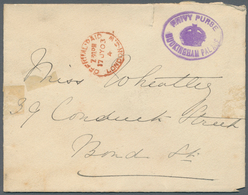 PRIVY PURSE
BUCKINGHAM PALACE
Miss Wheatley
39 Conduit Street
Bond St.